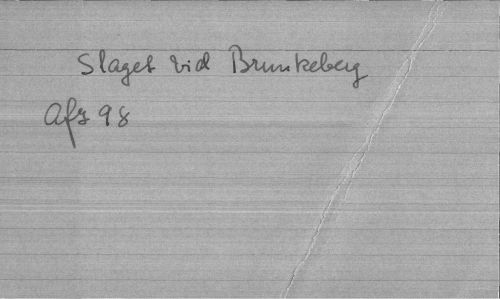 Slaget vid Brunkeberg
Afz 98